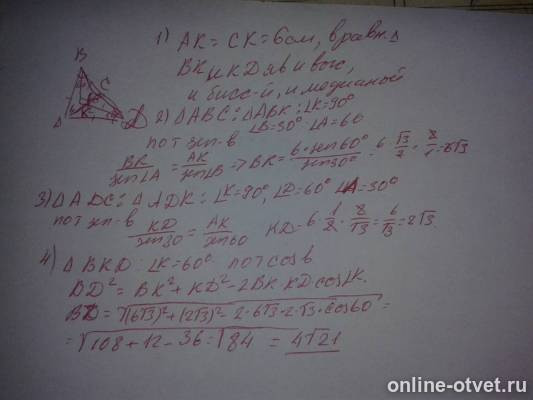 1) AK = CK = 6см, в равн. Δ
BK и KD яв и выс,
и бисс-й, и медианой
B
A
K
C
D
2) ΔABC: ΔABK: ∠K=90°
∠B=30° ∠A=60
по т sin-в
BK/sin∠A = AK/sin∠B => BK = 6·sin60°/sin30° = 6·√3/2 · 2/1 = 6√3
3) ΔADC: ΔADK: ∠K=90°, ∠D=60° ∠A=30°
по т sin-в
KD/sin30 = AK/sin60 KD = 6·1/2 · 2/√3 = 6/√3 = 2√3
4) ΔBKD: ∠K=60° по т cos в
BD² = BK² + KD² - 2BK·KD·cos∠K.
BD = √(6√3)² + (2√3)² - 2·6√3·2·√3·cos60° =
= √108 + 12 - 36 = √84 = 4√21
online-otvet.ru